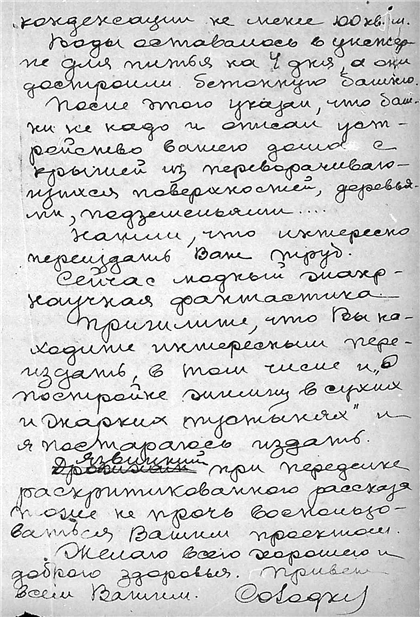 конденсации не менее 100 кв. м.
Воды оставалось в унктер-
пе для питья на 4 дня, а они
достроили бетонную башню.
После этого указал, что баш-
ни не надо и описал уст-
ройство вашего дома с
крышей из переворачиваю-
щихся поверхностей, деревья-
ми, подземельями.....
Нашли, что интересно
переиздать Ваш труд.
Сейчас модный жанр -
научная фантастика -
Пришлите, что Вы на-
ходите интересным пере-
издать, в том числе и „О
постройке жилищ в сухих
и жарких пустынях" и
я постараюсь издать.
Язвицкий при переделке
раскритикованного рассказа
тоже не прочь воспользо-
ваться Вашим проектом.
Желаю всего хорошего и
доброго здоровья. Привет
всем Вашим.